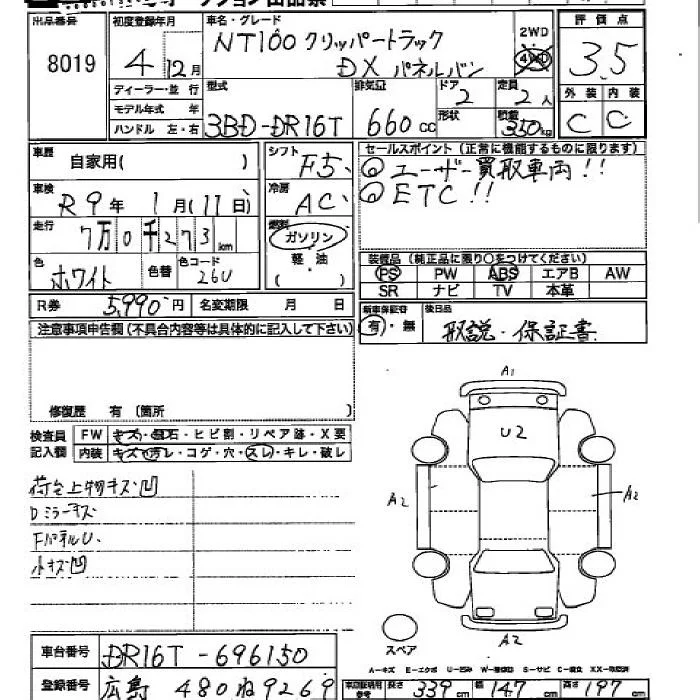 出品番号 初度登録年月 車名・グレード 2WD 評価点
8019 4年12月 NT100 クリッパートラック 4WD 3.5
DX パネルバン
ディーラー・並行 型式 排気量 ドア 定員 外装 内装
モデル年式 年 2 2人
ハンドル 左・右 3BD-DR16T 660cc 形状 積載 350kg C C
車歴 自家用( ) シフト F5 セールスポイント(正常に機能するものに限ります)
◎ユーザー買取車両!!
車検 R9年1月(11日) 冷房 AC ◎ETC!!
走行 7万0千273km 燃料 ガソリン
軽・油
( ・ )
色 ホワイト 色替 色コード 26U 装備品(純正品に限り○をつけてください)
PS PW ABS エアB AW
SR ナビ TV 本革
R券 5,990円 名変期限 月 日 新車保証書 有・無 後日品 取説・保証書
注意事項申告欄(不具合内容等は具体的に記入して下さい)
修復歴 有(箇所 )
検査員 FW キズ・飛石・ヒビ割・リペア跡・X要
記入欄 内装 キズ・汚レ・コゲ・穴・スレ・キレ・破レ
荷台上物キズ凹
Dミラーキズ
FパネルU.
小キズ凹
A1
U2
A2
A2
A2
スペア
A-キズ E-エクボ U-凹み W-補修跡 S-サビ C-腐食 XX-交換済
車台番号 DR16T-696150
登録番号 広島 480 ね 9269 長さ 339cm 幅 147cm 高さ 197cm